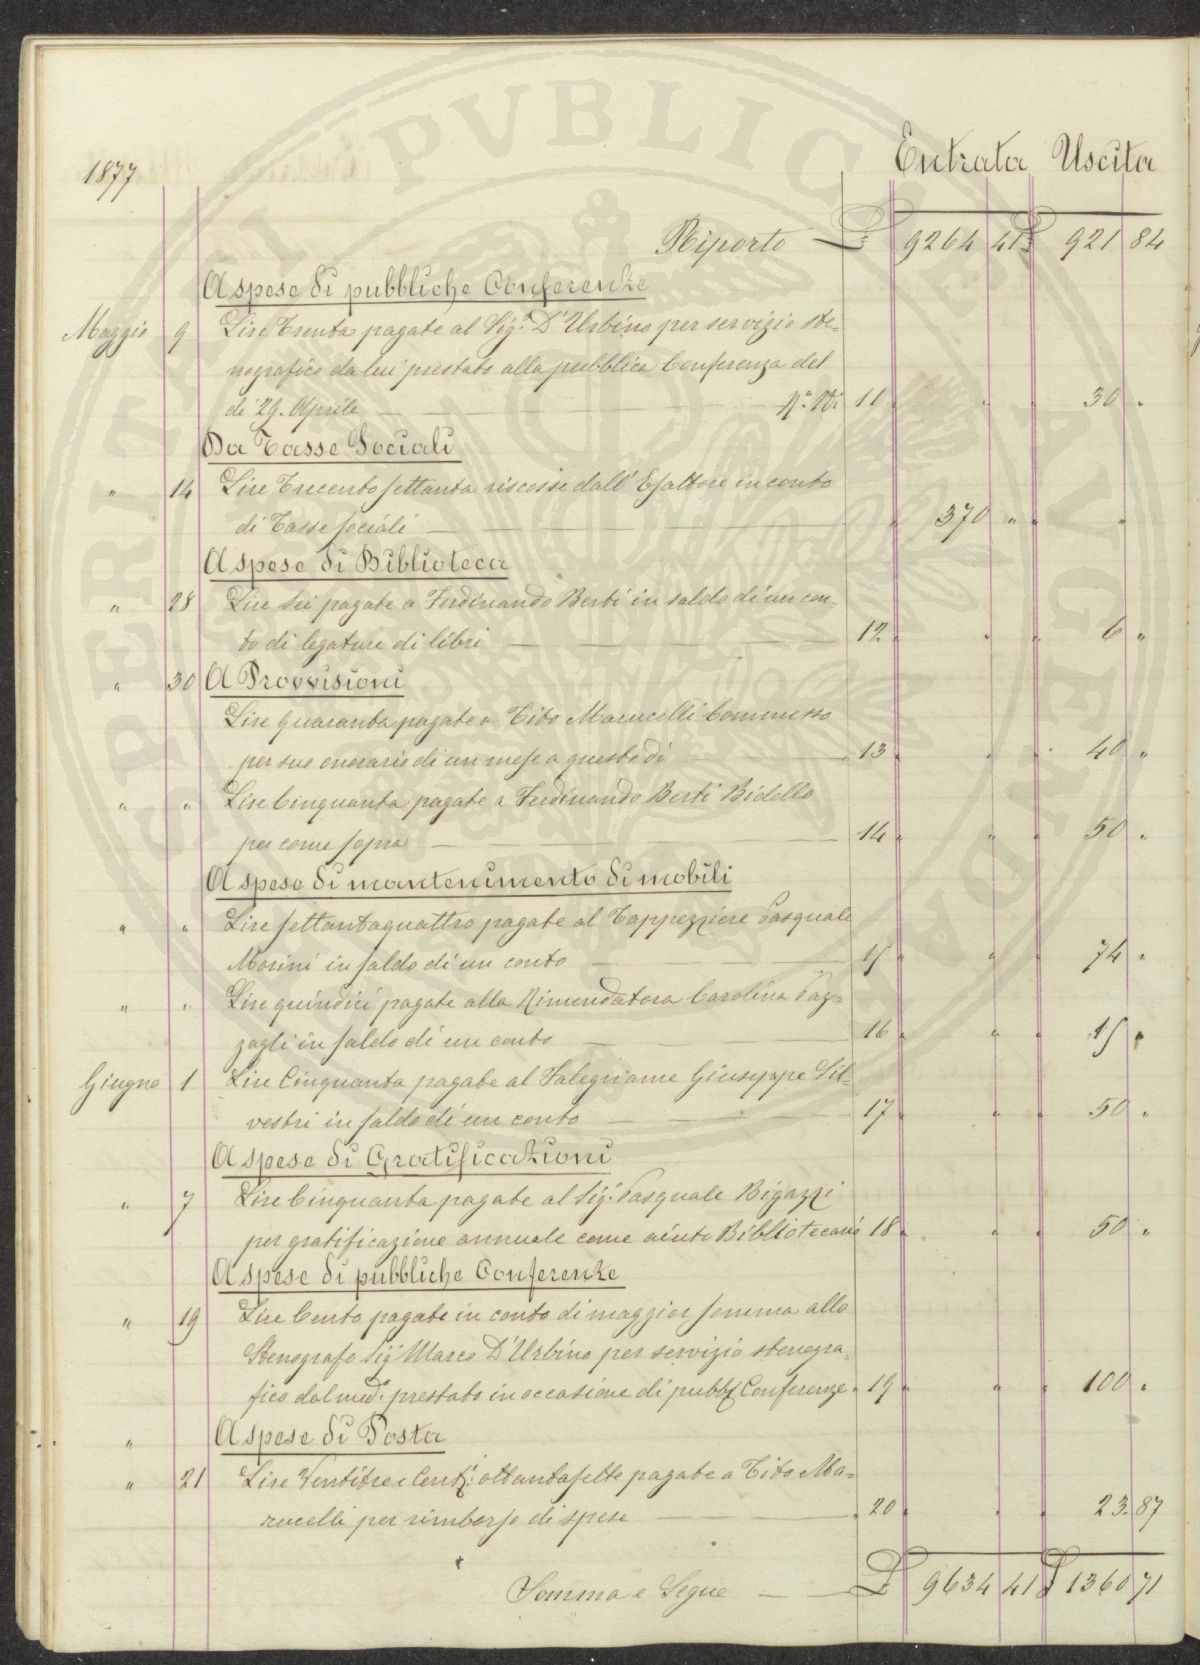 PROSPERITATI PVBLICAE AVGENDAE
Entrata Uscita
1877
Riporto £ 9264 41 £ 921 84
A spese di pubbliche Conferenze
Maggio 9 Lire Trenta pagate al Sig.r D'Urbino per servizio ste-
nografico da lui prestato alla pubblica Conferenza del
di 29. Aprile 11 " " 30 "
Da Tasse Sociali
" 14 Lire Trecento settanta riscosse dall'Esattore in conto
di Tasse sociali " 370 " " "
A spese di Biblioteca
" 28 Lire Sei pagate a Ferdinando Berti in saldo di un con-
to di legature di libri 12 " " " 6 "
" 30 A Provvisioni
Lire quaranta pagate a Tito Marucelli Commesso
per suo onorario di un mese a questo dì 13 " " " 40 "
" " Lire Cinquanta pagate a Ferdinando Berti Bidello
per come sopra 14 " " " 50 "
A spese di mantenimento di mobili
" " Lire settantaquattro pagate al Tappezziere Pasquale
Morini in saldo di un conto 15 " " " 74 "
" " Lire quindici pagate alla Rimendatora Carolina Paz-
zagli in saldo di un conto 16 " " " 15 "
Giugno 1 Lire Cinquanta pagate al Falegname Giuseppe Sil-
vestri in saldo di un conto 17 " " " 50 "
A spese di Gratificazioni
" 7 Lire Cinquanta pagate al Sig.r Pasquale Bigazzi
per gratificazione annuale come aiuto Bibliotecario 18 " " " 50 "
A spese di pubbliche Conferenze
" 19 Lire Cento pagate in conto di maggior somma allo
Stenografo Sig.r Marco D'Urbino per servizio stenogra-
fico dal med.o prestato in occasione di pubb. Conferenze 19 " " " 100 "
" A spese di Posta
" 21 Lire Ventitre e Cent.i ottantasette pagate a Tito Ma-
rucelli per rimborso di spese 20 " " " 23. 87
Somma e Segue £ 9634 41 £ 1360 71